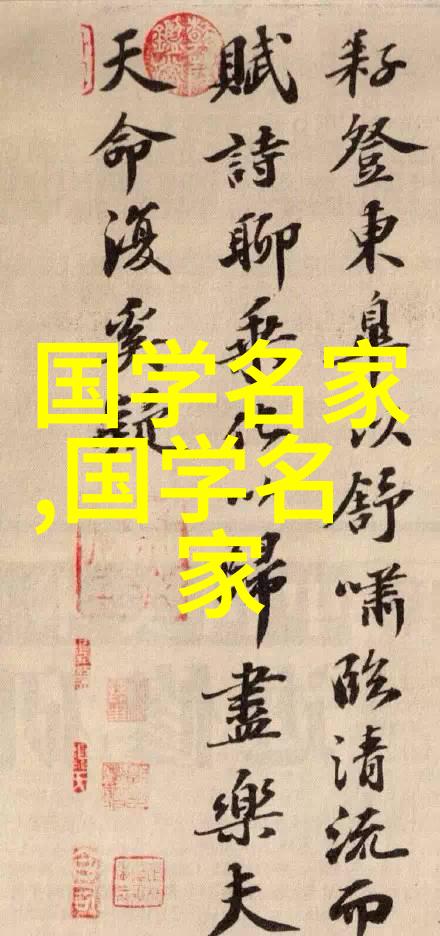 耔登東皐以舒嘯臨清流而
賦詩聊乗化以歸盡樂夫
天命復奚疑
国学名家
,国学名
家